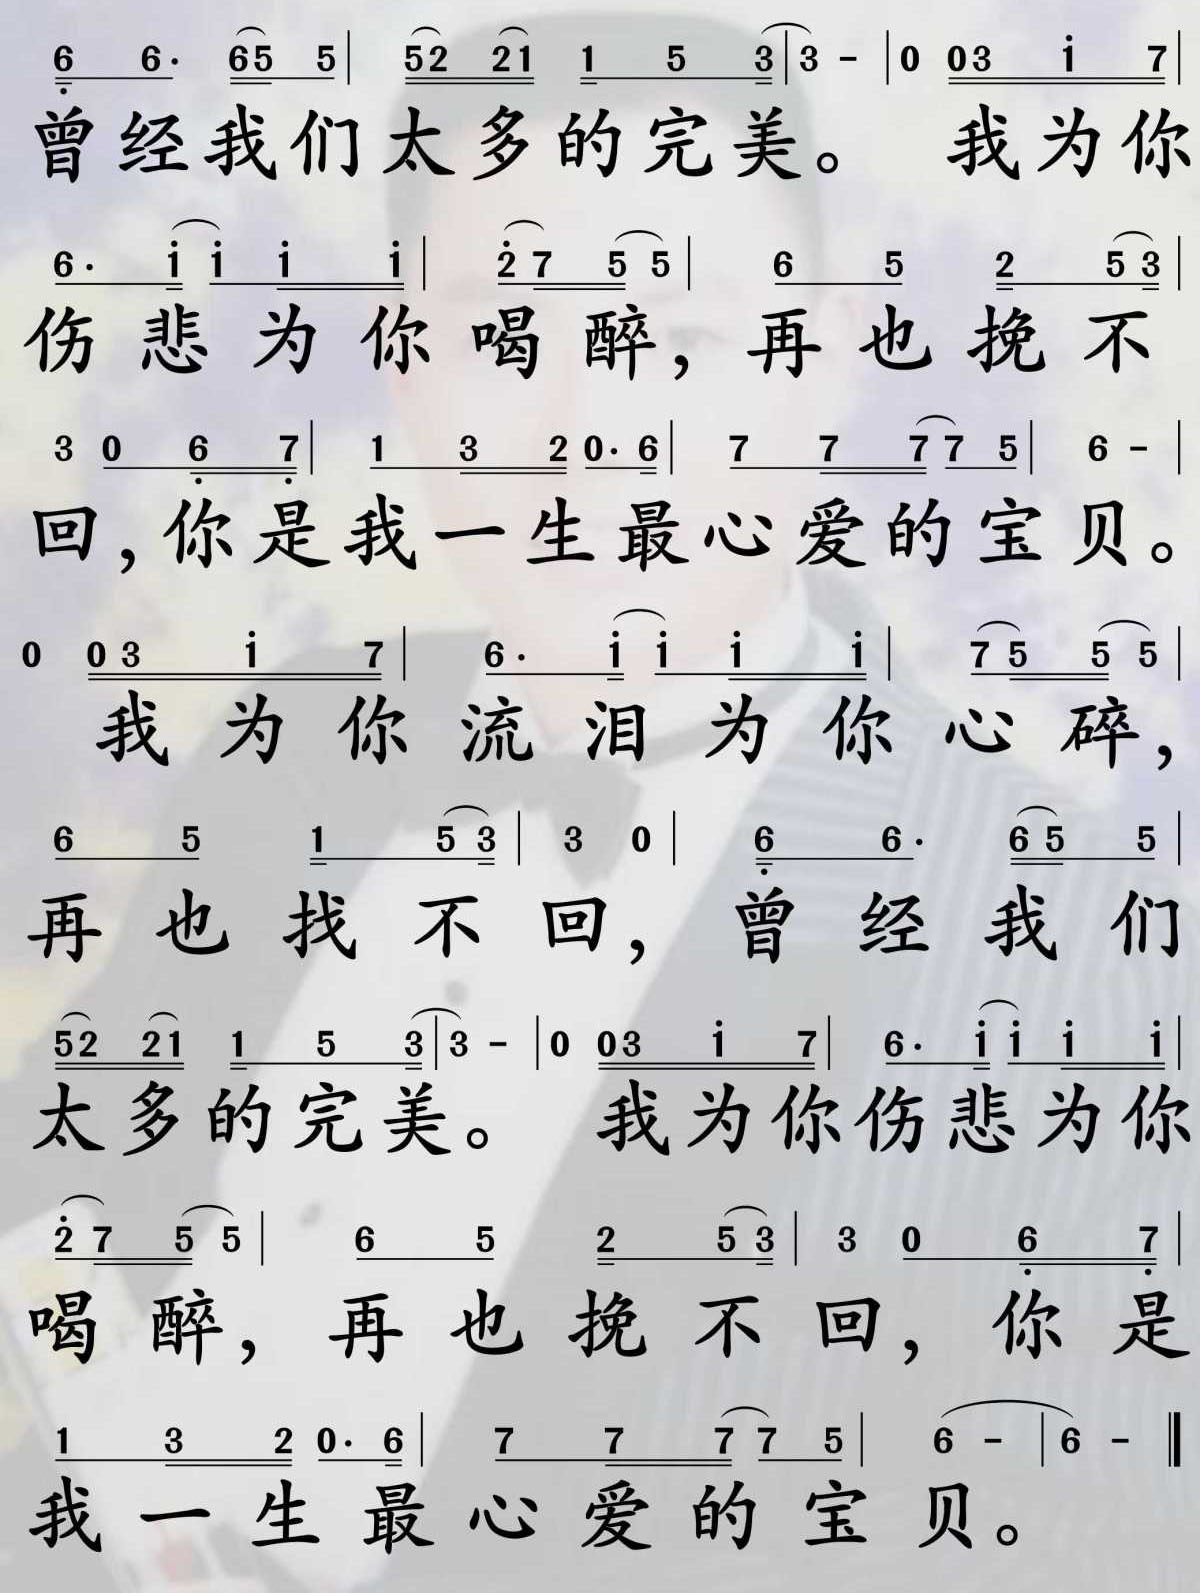 6 6· 65 5 | 52 21 1 5 3 | 3 - | 0 03 i 7 |
曾经我们太多的完美。 我为你
6· i i i i | 2̇ 7 5 5 | 6 5 2 5 3 |
伤悲为你喝醉，再也挽不
3 0 6̣ 7̣ | 1 3 2 0· 6 | 7 7 7 7 5 | 6 - |
回，你是我一生最心爱的宝贝。
0 03 i 7 | 6· i i i i | 7 5 5 5 |
我为你流泪为你心碎，
6 5 1 5 3 | 3 0 | 6̣ 6· 6 5 5 |
再也找不回，曾经我们
52 21 1 5 3 | 3 - | 0 03 i 7 | 6· i i i i |
太多的完美。 我为你伤悲为你
2̇ 7 5 5 | 6 5 2 5 3 | 3 0 6̣ 7̣ |
喝醉，再也挽不回，你是
1 3 2 0· 6 | 7 7 7 7 5 | 6 - | 6 - ‖
我一生最心爱的宝贝。